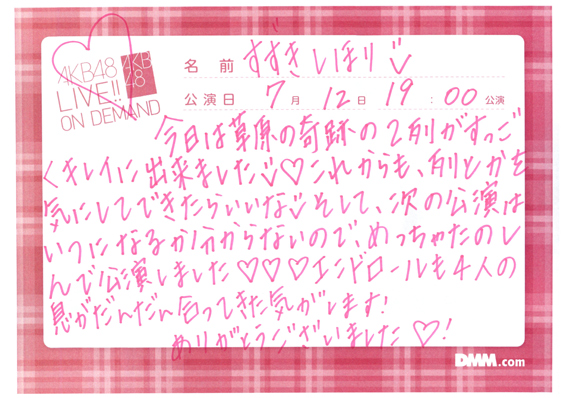 AKB48
LIVE!!
ON DEMAND
AKB
48
名前 すずきしほり
公演日 7月12日 19:00公演
今日は草原の奇跡の2列がすっご
くキレイに出来ました♡これからも、列とかを
気にしてできたらいいな そして、次の公演は
いつになるか分からないので、めっちゃたのし
んで公演しました♡♡♡エンドロールも4人の
息がだんだん合ってきた気がします!
ありがとうございました♡!
DMM.com